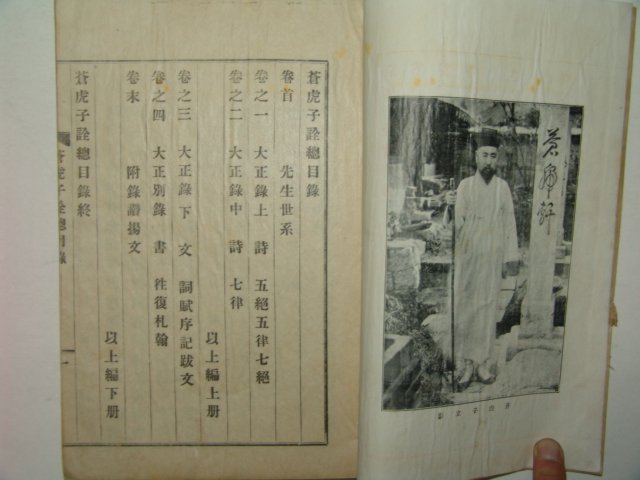 蒼虎軒
蒼虎子詮總目錄
卷首 先生世系
卷之一 大正錄上 詩 五絕五律七絕
卷之二 大正錄中 詩 七律
以上編上册
卷之三 大正錄下 文 詞賦序記跋文
卷之四 大正別錄 書 徃復札翰
卷末 附錄讚揚文
以上編下册
蒼虎子詮總目錄終
蒼虎子詮總目錄